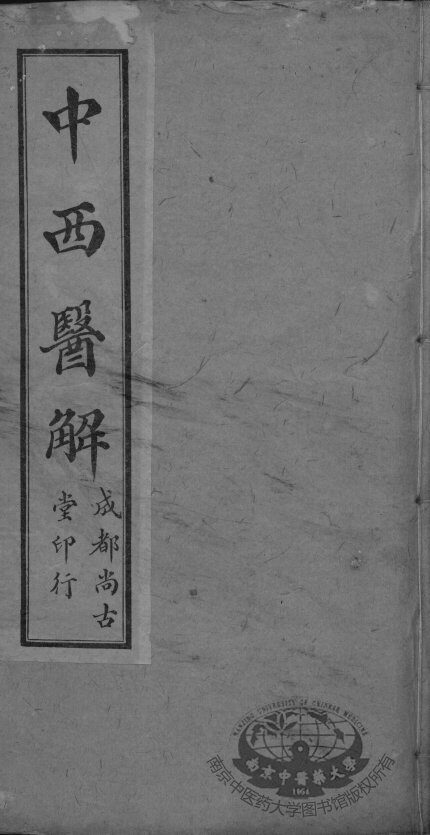 中西醫解
成都尚古
堂印行
NANJING UNIVERSITY OF CHINESE MEDICINE
南京中醫藥大學
1954
南京中医药大学图书馆版权所有